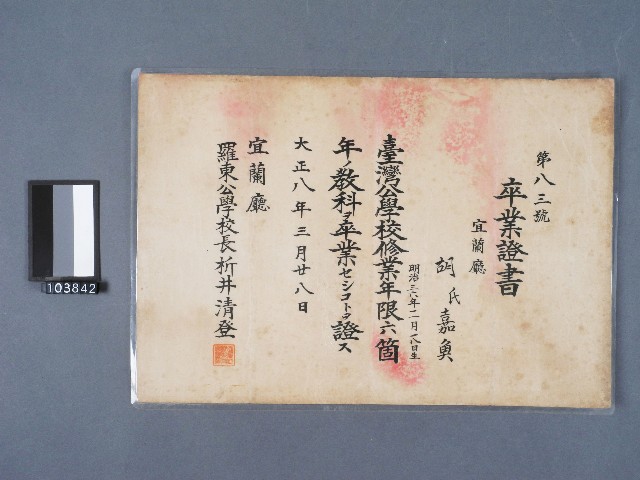 第八三號
卒業證書
宜蘭廳
胡氏嘉奐
明治三六年二月一八日生
臺灣公學校修業年限六箇
年ノ教科ヲ卒業セシコトヲ證ス
大正八年三月廿八日
宜蘭廳
羅東公學校長折井清登
103842